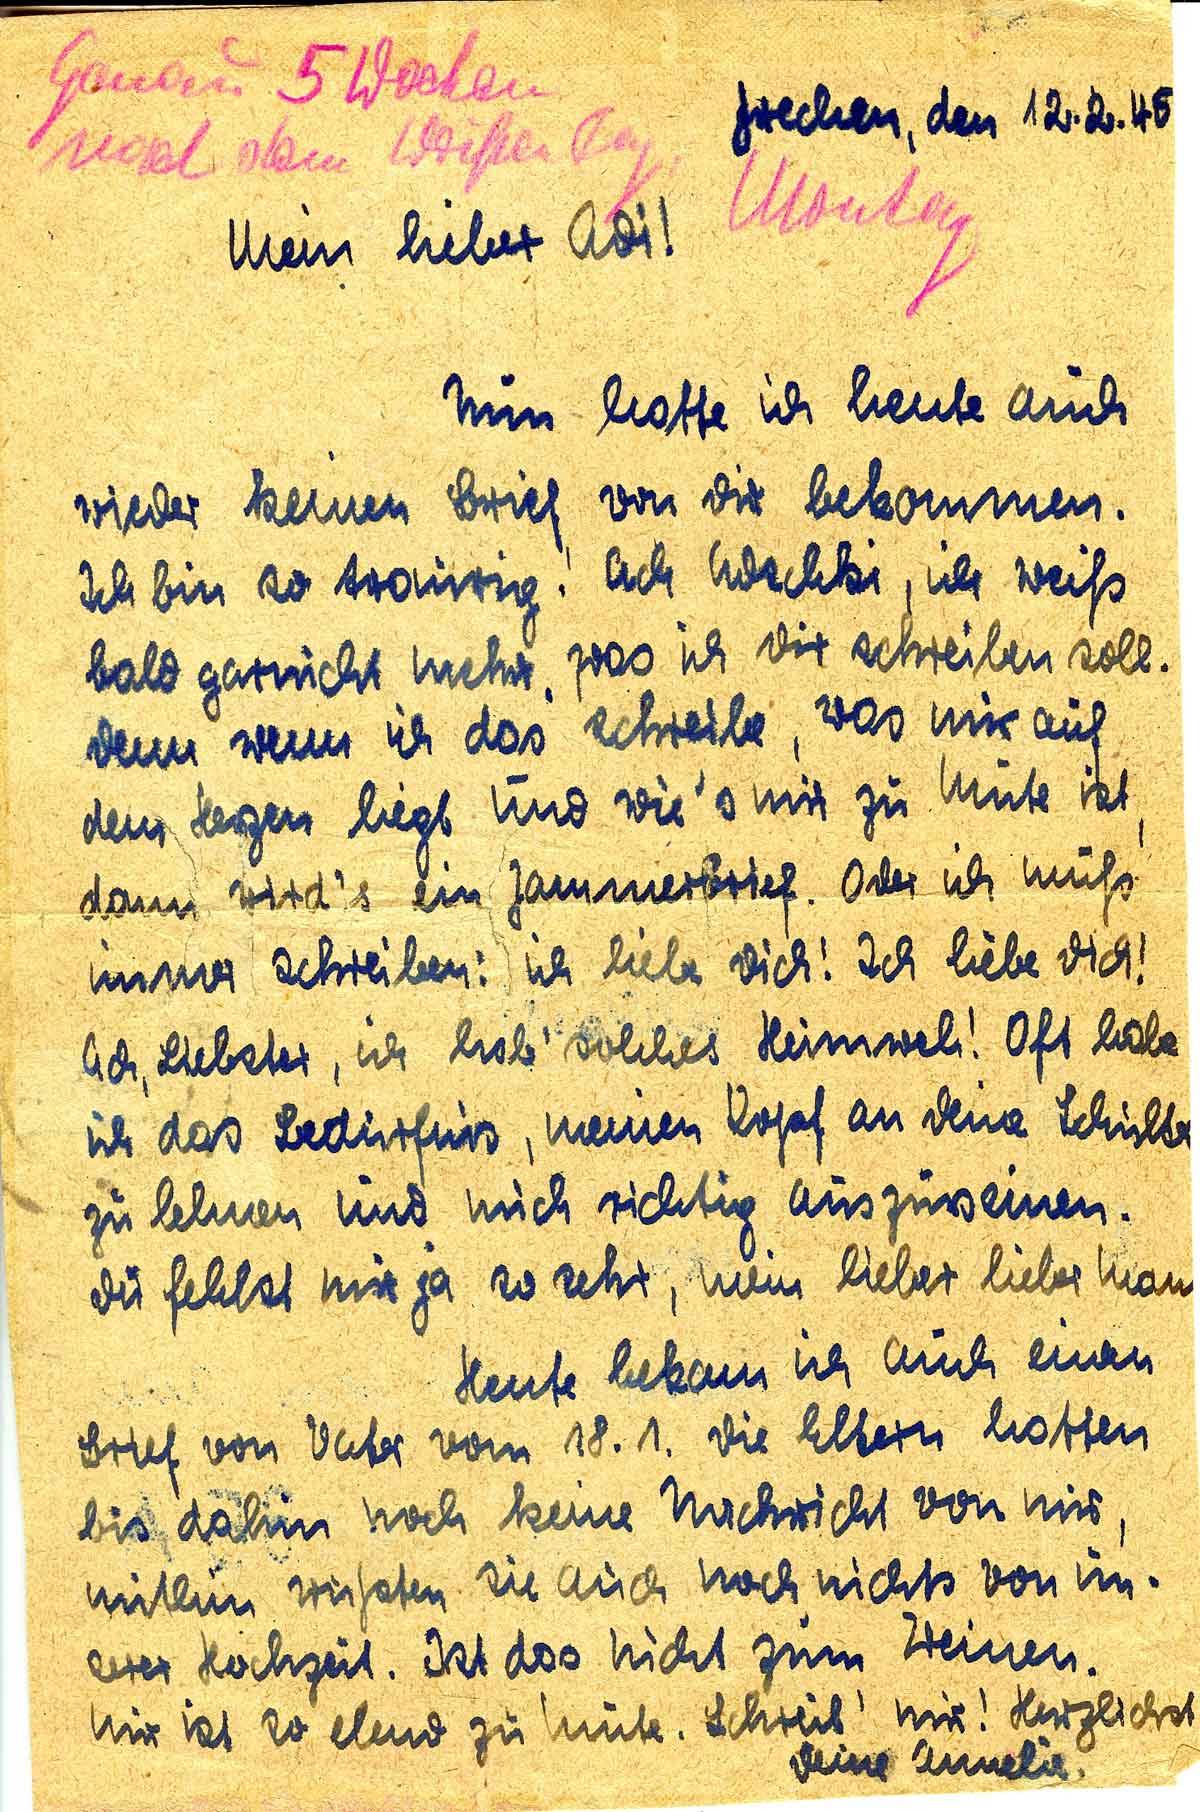 Genau 5 Wochen
nach dem Weißen Tag.
Frechen, den 12.2.45
Montag
Mein lieber Adi!
Nun hatte ich heute auch
wieder keinen Brief von dir bekommen.
Ich bin so traurig! Ach Adschki, ich weiß
bald garnicht mehr, was ich dir schreiben soll.
denn wenn ich das schreibe, was mir auf
dem Herzen liegt und wie's mir zu Mute ist,
dann wird's ein Jammerbrief. Oder ich muß
immer schreiben: ich liebe dich! Ich liebe dich!
Ach, Liebster, ich hab' solches Heimweh! Oft habe
ich das Bedürfnis, meinen Kopf an deine Schulter
zu lehnen und mich richtig auszuweinen.
du fehlst mir ja so sehr, mein lieber lieber Mann
Heute bekam ich auch einen
Brief von Vater vom 18.1. die Eltern hatten
bis dahin noch keine Nachricht von mir,
mithin wußten sie auch noch nichts von un-
serer Hochzeit. Ist das nicht zum Weinen.
Mir ist so elend zu Mute. Schreib' mir! Herzlichst
deine Annelie.